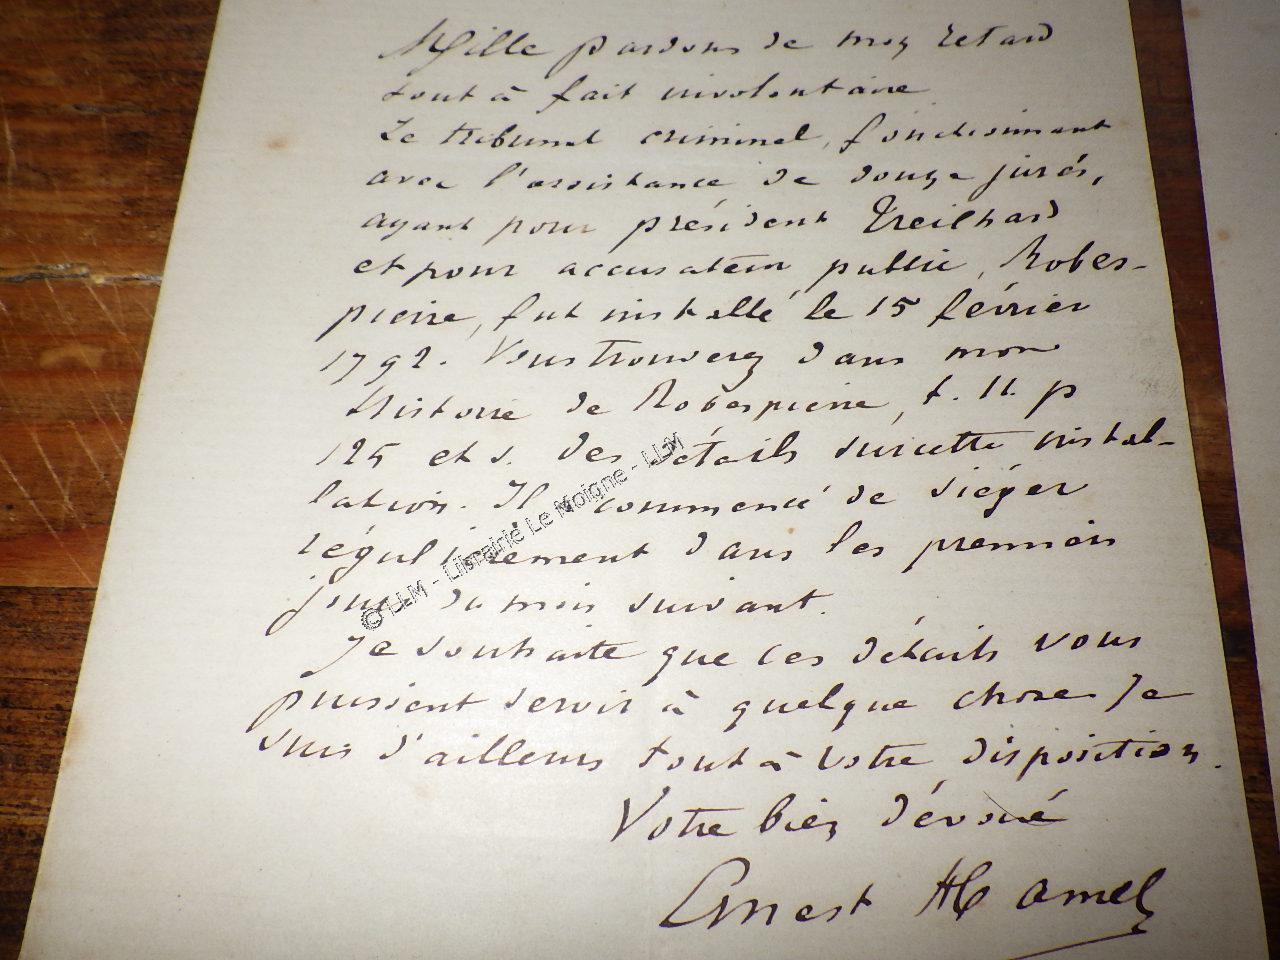 Mille pardons de mon retard
tout à fait involontaire
Le tribunal criminel, fonctionnant
avec l'assistance de douze jurés,
ayant pour président Treilhard
et pour accusateur public, Robes-
pierre, fut installé le 15 février
1792. Vous trouverez dans mon
Histoire de Robespierre, t. II. p
125 et s. des détails sur cette instal-
lation. Il a commencé de siéger
régulièrement dans les premiers
jours du mois suivant.
Je souhaite que ces détails vous
puissent servir à quelque chose. Je
suis d'ailleurs tout à votre disposition.
Votre bien dévoué
Ernest Hamel
© LLM - Librairie Le Moigne - LLM